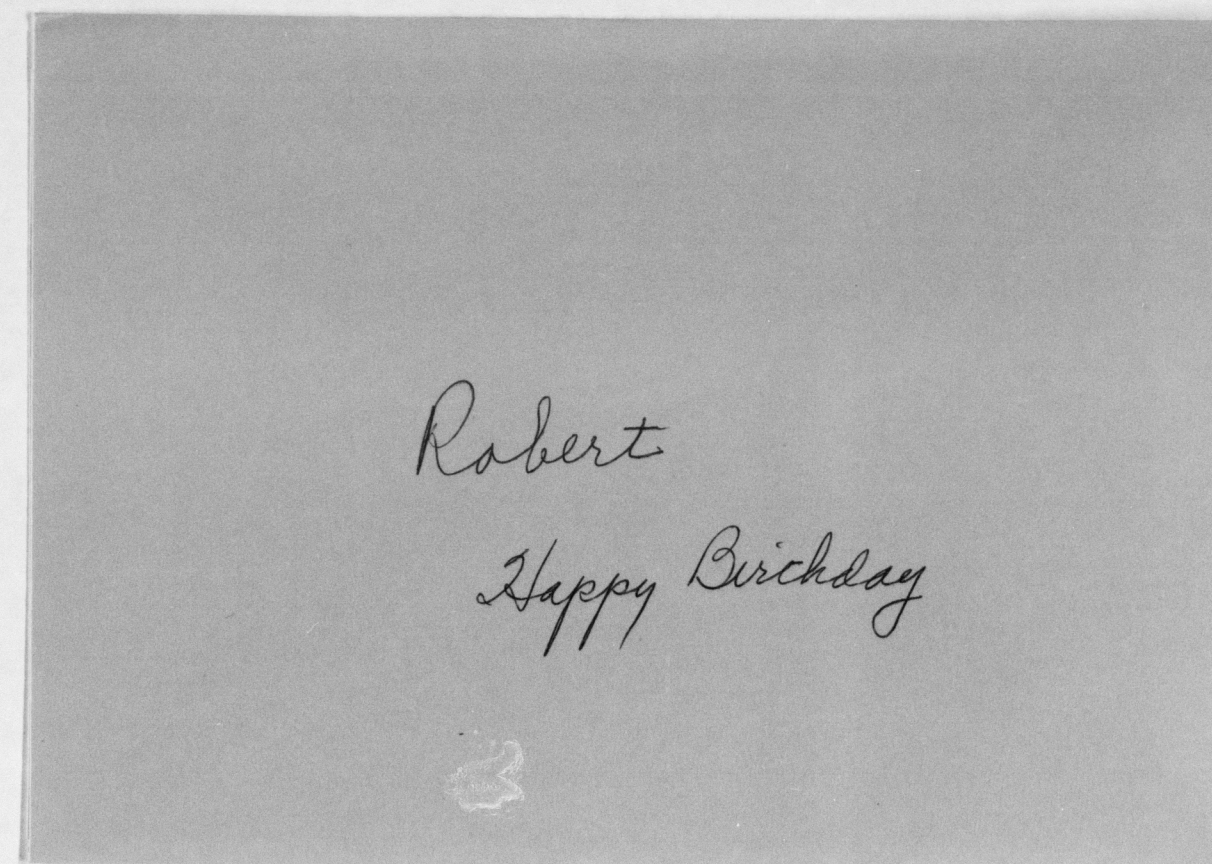 Robert
Happy Birchday